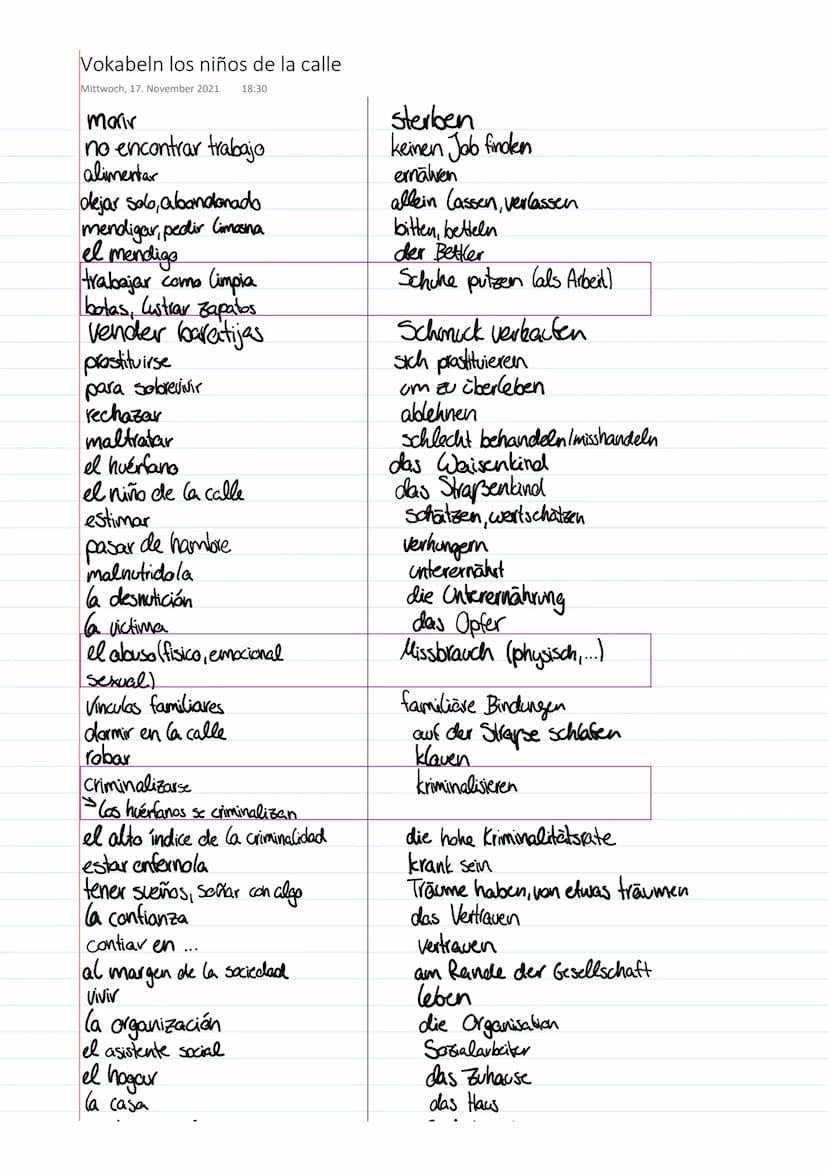 Vokabeln los niños de la calle
Mittwoch, 17. November 2021 18:30
morir sterben
no encontrar trabajo keinen Job finden
alimentar ernähren
dejar solo, abandonado allein lassen, verlassen
mendigar, pedir limosna bitten, betteln
el mendigo der Bettler
trabajar como limpia Schuhe putzen (als Arbeit)
botas, lustrar zapatos
vender baratijas Schmuck verkaufen
prostituirse sich prostituieren
para sobrevivir um zu überleben
rechazar ablehnen
maltratar schlecht behandeln/misshandeln
el huérfano das Waisenkind
el niño de la calle das Straßenkind
estimar schätzen, wertschätzen
pasar de hambre verhungern
malnutrido/a unterernährt
la desnutición die Unterernährung
la victima das Opfer
el abuso (fisico, emocional Missbrauch (physisch,...)
sexual)
Vinculos familiares familiäre Bindungen
dormir en la calle auf der Straße schlafen
robar klauen
criminalizarse kriminalisieren
→ Los huérfanos se criminalizan
el alto índice de la criminalidad die hohe Kriminalitätsrate
estar enfermo/a krank sein
tener sueños, soñar con algo Träume haben, von etwas träumen
la confianza das Vertrauen
confiar en ... vertrauen
al margen de la sociedad am Rande der Gesellschaft
vivir leben
la organización die Organisation
el asistente social Sozialarbeiter
el hogar das Zuhause
la casa das Haus